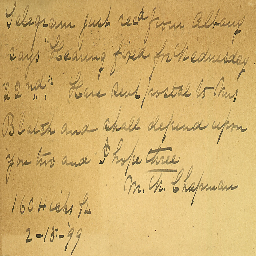 Telegram just rec'd from Albany
says Hearing fixed for Wednesday
22nd. Have sent postal to Mrs
Blatch and shall depend upon
you two and I hope three
M. A. Chapman
160 Hicks St
2-15-99